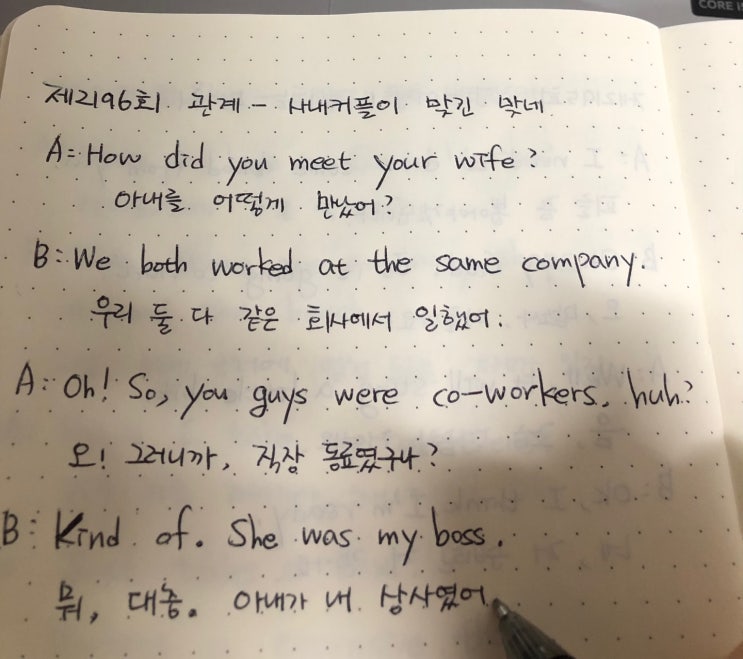 CORE i
제2196회 관계 - 사내커플이 맞긴 맞네
A: How did you meet your wife?
아내를 어떻게 만났어?
B: We both worked at the same company.
우리 둘 다 같은 회사에서 일했어.
A: Oh! So, you guys were co-workers, huh?
오! 그러니까, 직장 동료였구나?
B: Kind of. She was my boss.
뭐, 대충. 아내가 내 상사였어